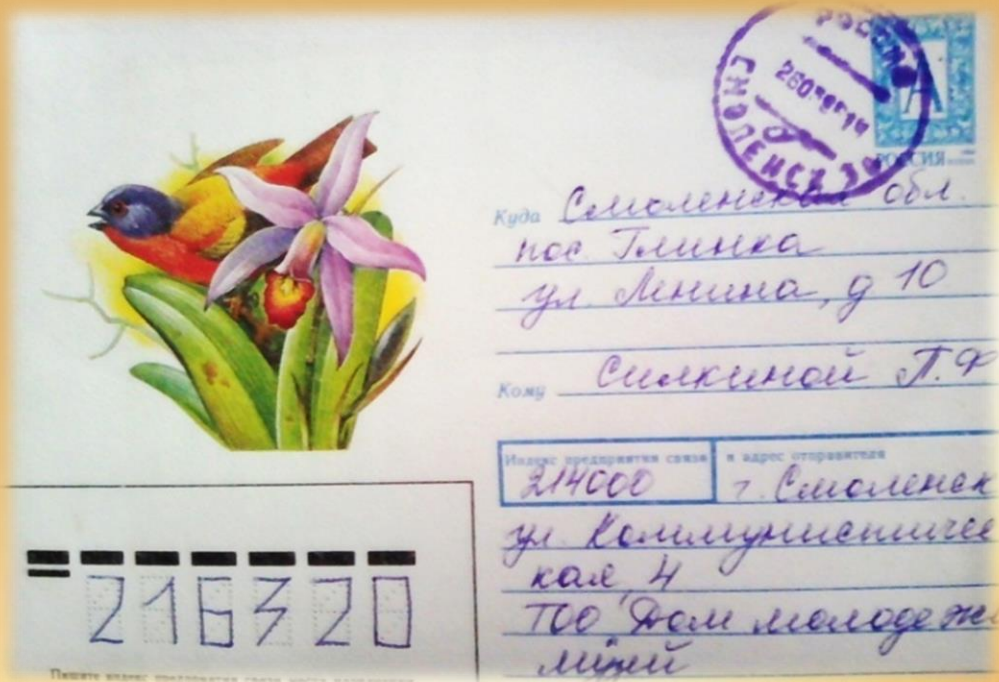 РОССИЯ
СМОЛЕНСК
А
РОССИЯ
Куда Смоленская обл.
пос. Глинка
ул. Ленина, д 10
Кому Силкиной П.Ф
Индекс предприятия связи и адрес отправителя
214000 г. Смоленск
ул. Коммунистичес
кая, 4
ТОО "Дом молодеж
216320
Пишите индекс предприятия связи места назначения